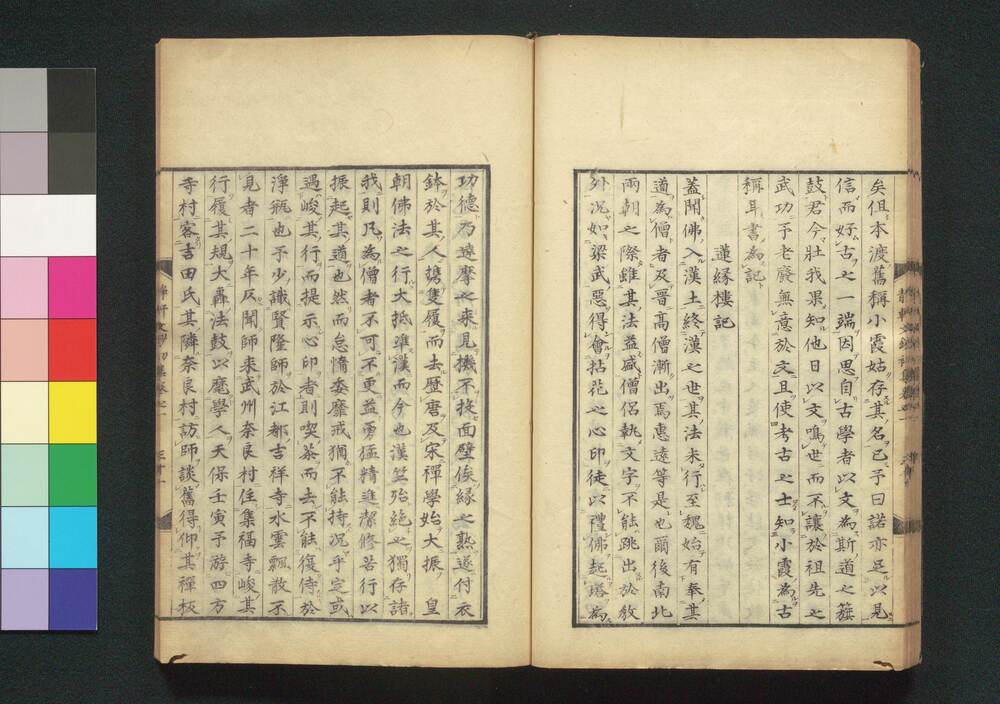 矣但本渡舊稱小霞姑存其名已予曰諾亦足以見
信而好古之一端因思自古學者以文為斯道之籏
鼓君今壯我果知他日以文鳴世而不讓於祖先之
武功予老廢無意於文且使考古之士知小霞為古
稱耳書為記
蓮縁樓記
蓋聞佛入漢土終漢之世其法未行至魏始有奉其
道為僧者及晉高僧漸出焉惠遠等是也爾後南北
兩朝之際雖其法益盛僧侶執文字不能跳出於教
外況如梁武惡得會拈花之心印徒以禮佛起塔為
功德乃達摩之來見機不投面壁俟縁之熟遂付衣
鉢於其人携隻履而去歷唐及宋禪學始大振　皇
朝佛法之行大抵準漢而今也漢竺殆絶之獨存諸
我則凡為僧者不可不更益勇猛精進潔修苦行以
振起其道也然而怠惰委靡戒猶不能持況乎定或
過峻其行而提示心印者則喫茶而去不能復侍於
淨瓶也予少識賢隆師於江都吉祥寺水雲飄散不
見者二十年仄聞師来武州奈良村住集福寺峻其
行履其規大轟法鼓以麾學人天保壬寅予游四方
寺村客吉田氏其隣奈良村訪師談舊得仰其禪板